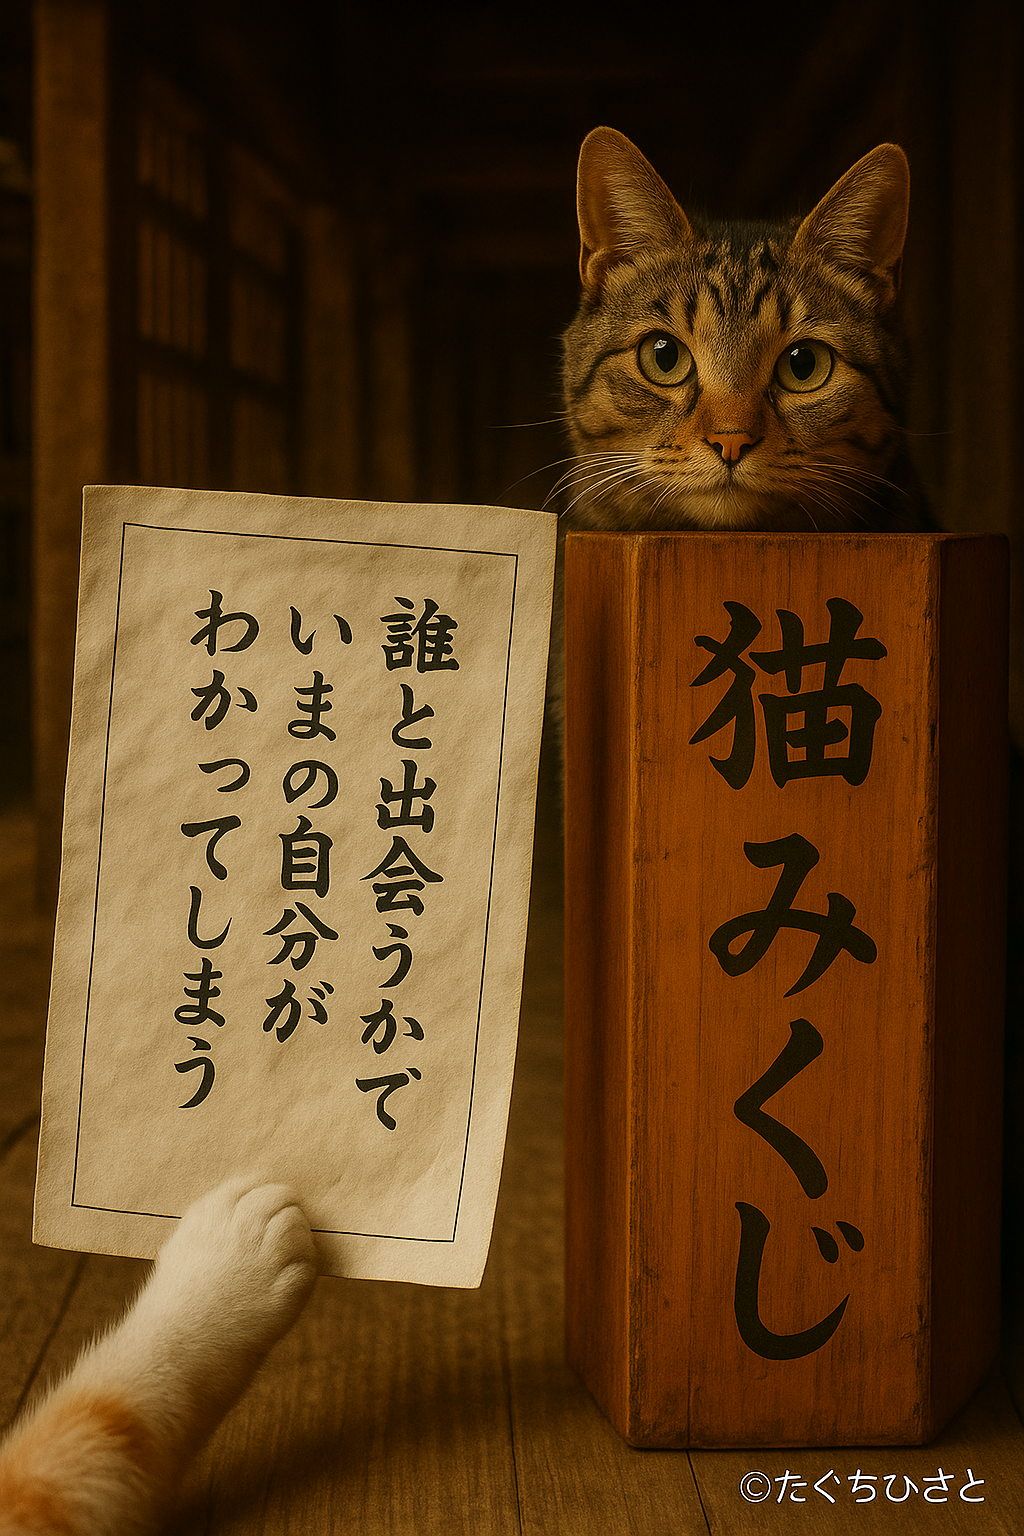 誰と出会うかで
いまの自分が
わかってしまう
猫みくじ
©たぐちひさと